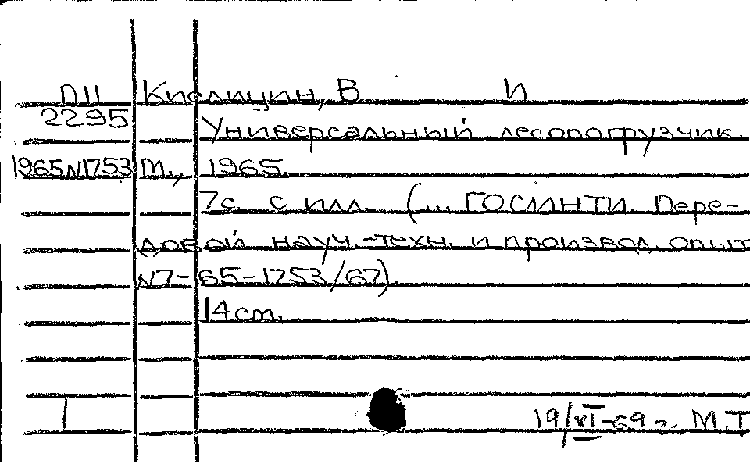 П11 Кислицин, В И
2295
Универсальный лесопогрузчик.
1965N1753 М., 1965.
7с. с илл. (... ГОСИНТИ. Пере-
довой науч.-техн. и производ. опыт
N7-65-1753/67).
14 см.
1 19/VI-69 г. М.Т